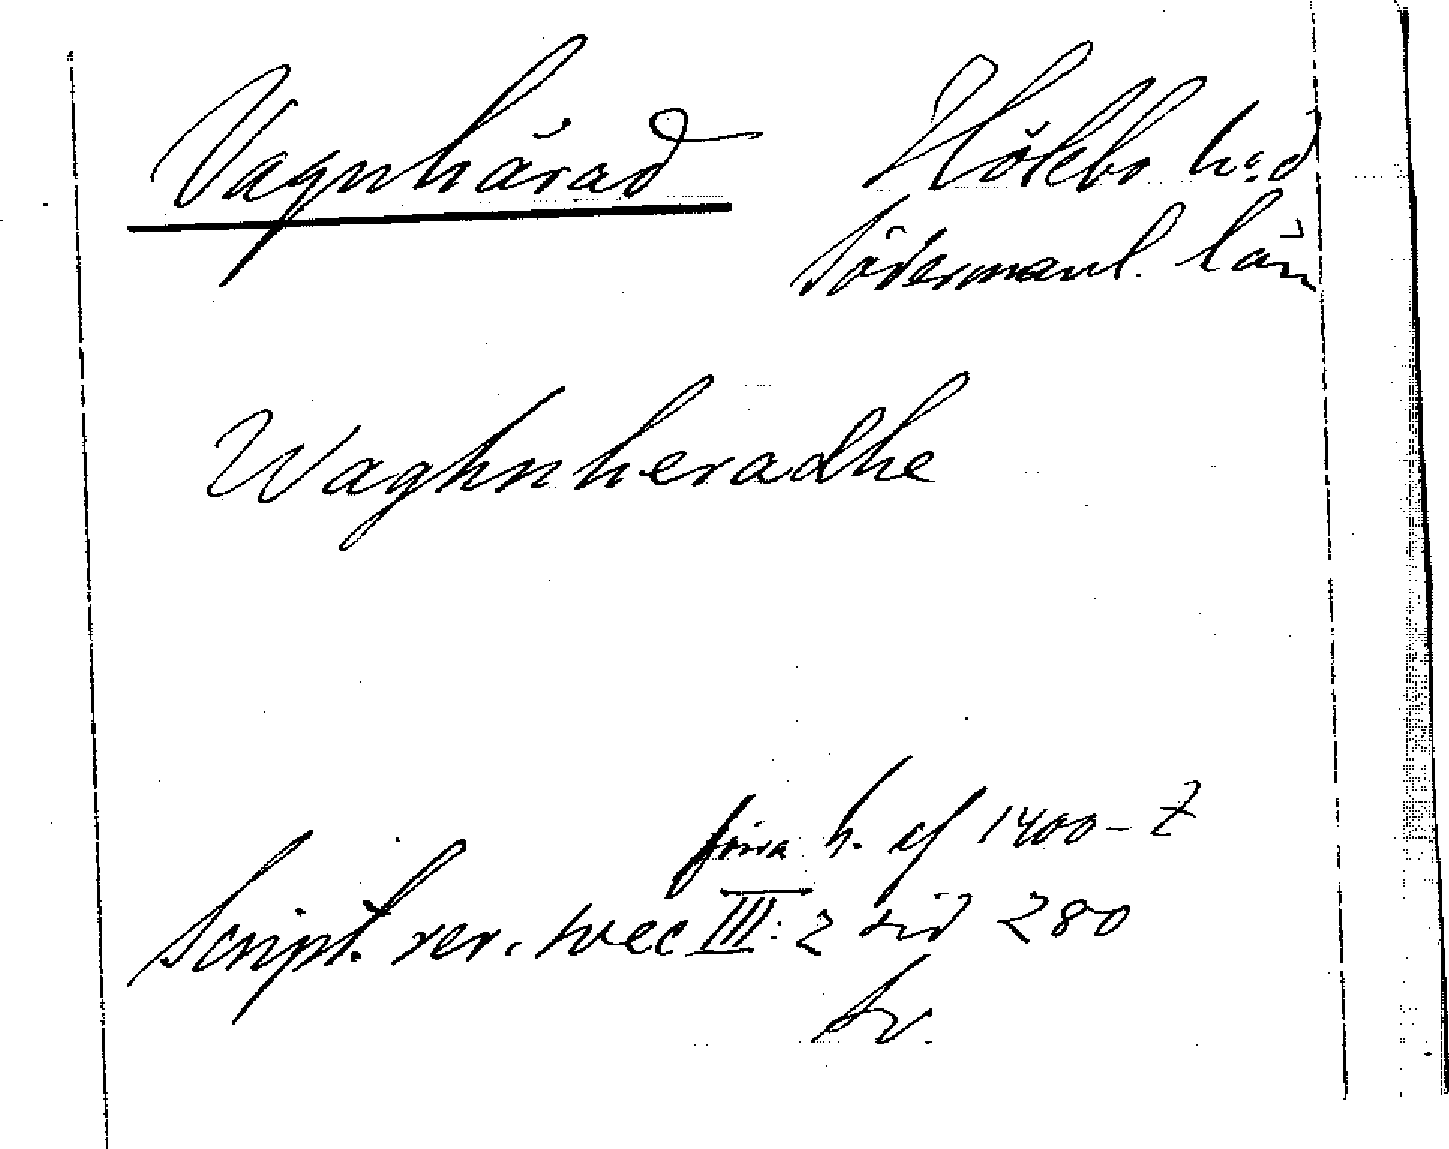 Vagnhärad Hölebo h:d
Södermanl. län
Waghnheradhe
förra h. af 1400-t
Script. rer. svec III: 2 sid 280
Sv.